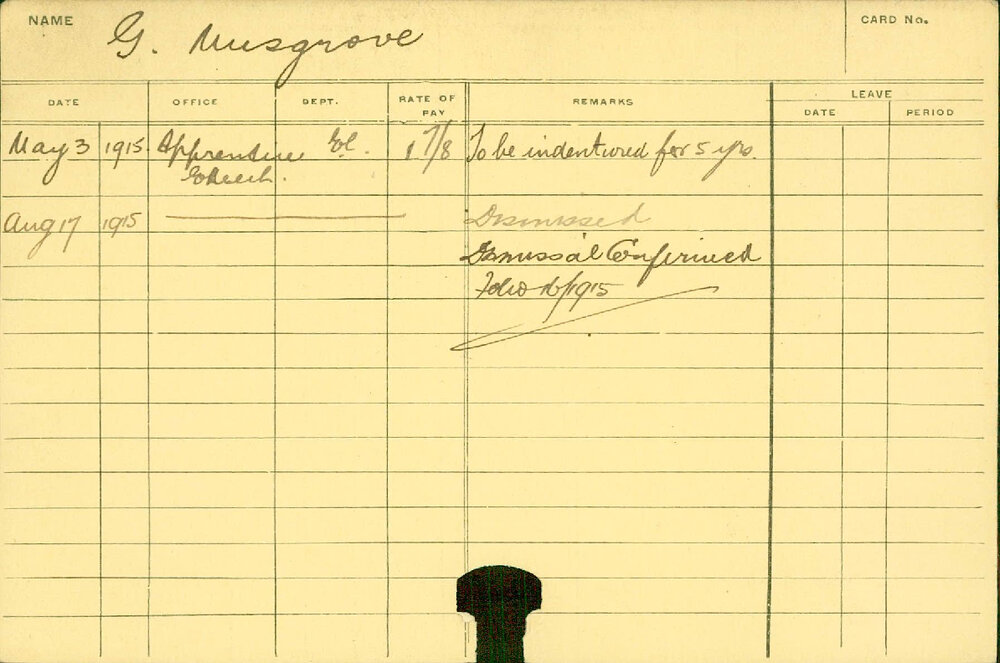 NAME G. Musgrove CARD No.
LEAVE
DATE OFFICE DEPT. RATE OF PAY REMARKS DATE PERIOD
May 3 1915 Apprentice El. 1 7/8 To be indentured for 5 yrs.
Aug 17 1915 Dismissed
Dismissal Confirmed
Folio 16/1915